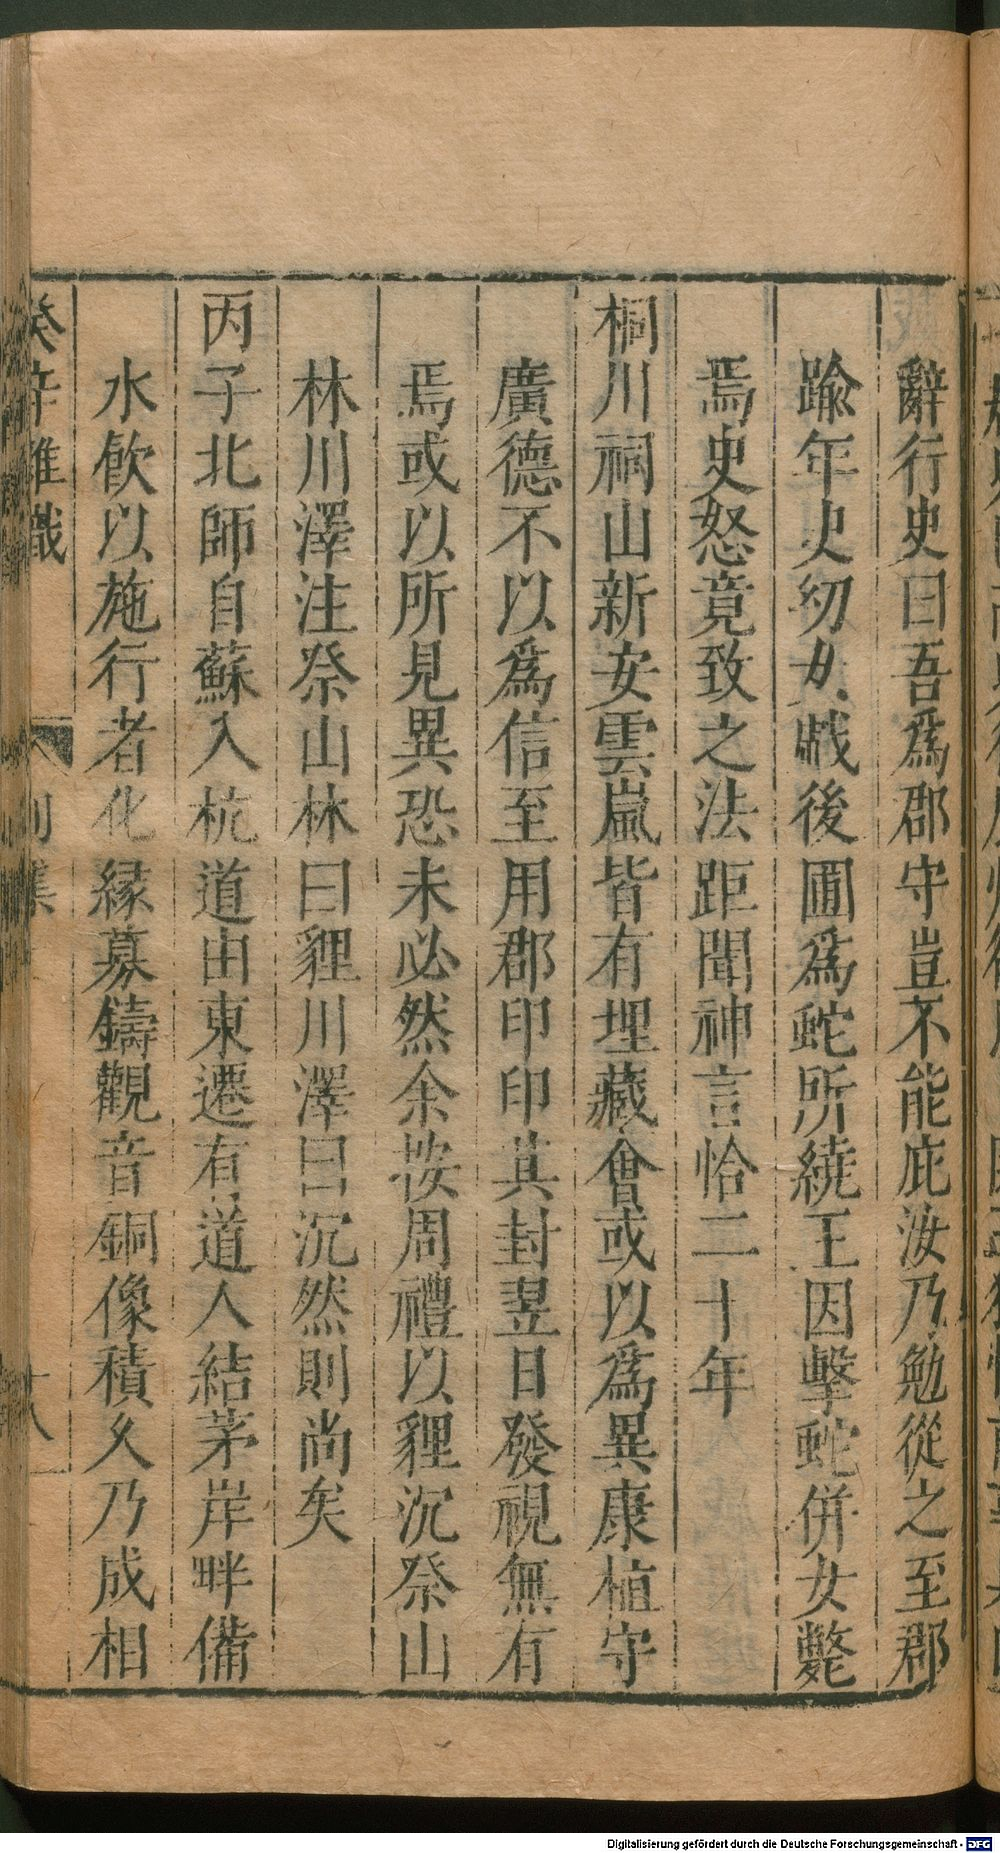 辭行史曰吾爲郡守豈不能庇汝乃勉從之至郡
踰年史幼女戲後圃爲蛇所繞王因擊蛇併女斃
焉史怒竟致之法距聞神言恰二十年
桐川祠山新安雲嵐皆有埋藏會或以爲異康植守
廣德不以爲信至用郡印印其封翌日發視無有
焉或以所見異恐未必然余按周禮以貍沉祭山
林川澤注祭山林曰貍川澤曰沉然則尚矣
丙子北師自蘇入杭道由東遷有道人結茅岸畔備
水飲以施行者化縁募鑄觀音銅像積久乃成相
癸辛雜識 別集 十八
Digitalisierung gefördert durch die Deutsche Forschungsgemeinschaft - DFG